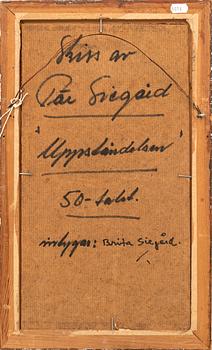 Skiss av
Pär Siegård
"Uppståndelsen"
50-talet.
intygar: Brita Siegård.